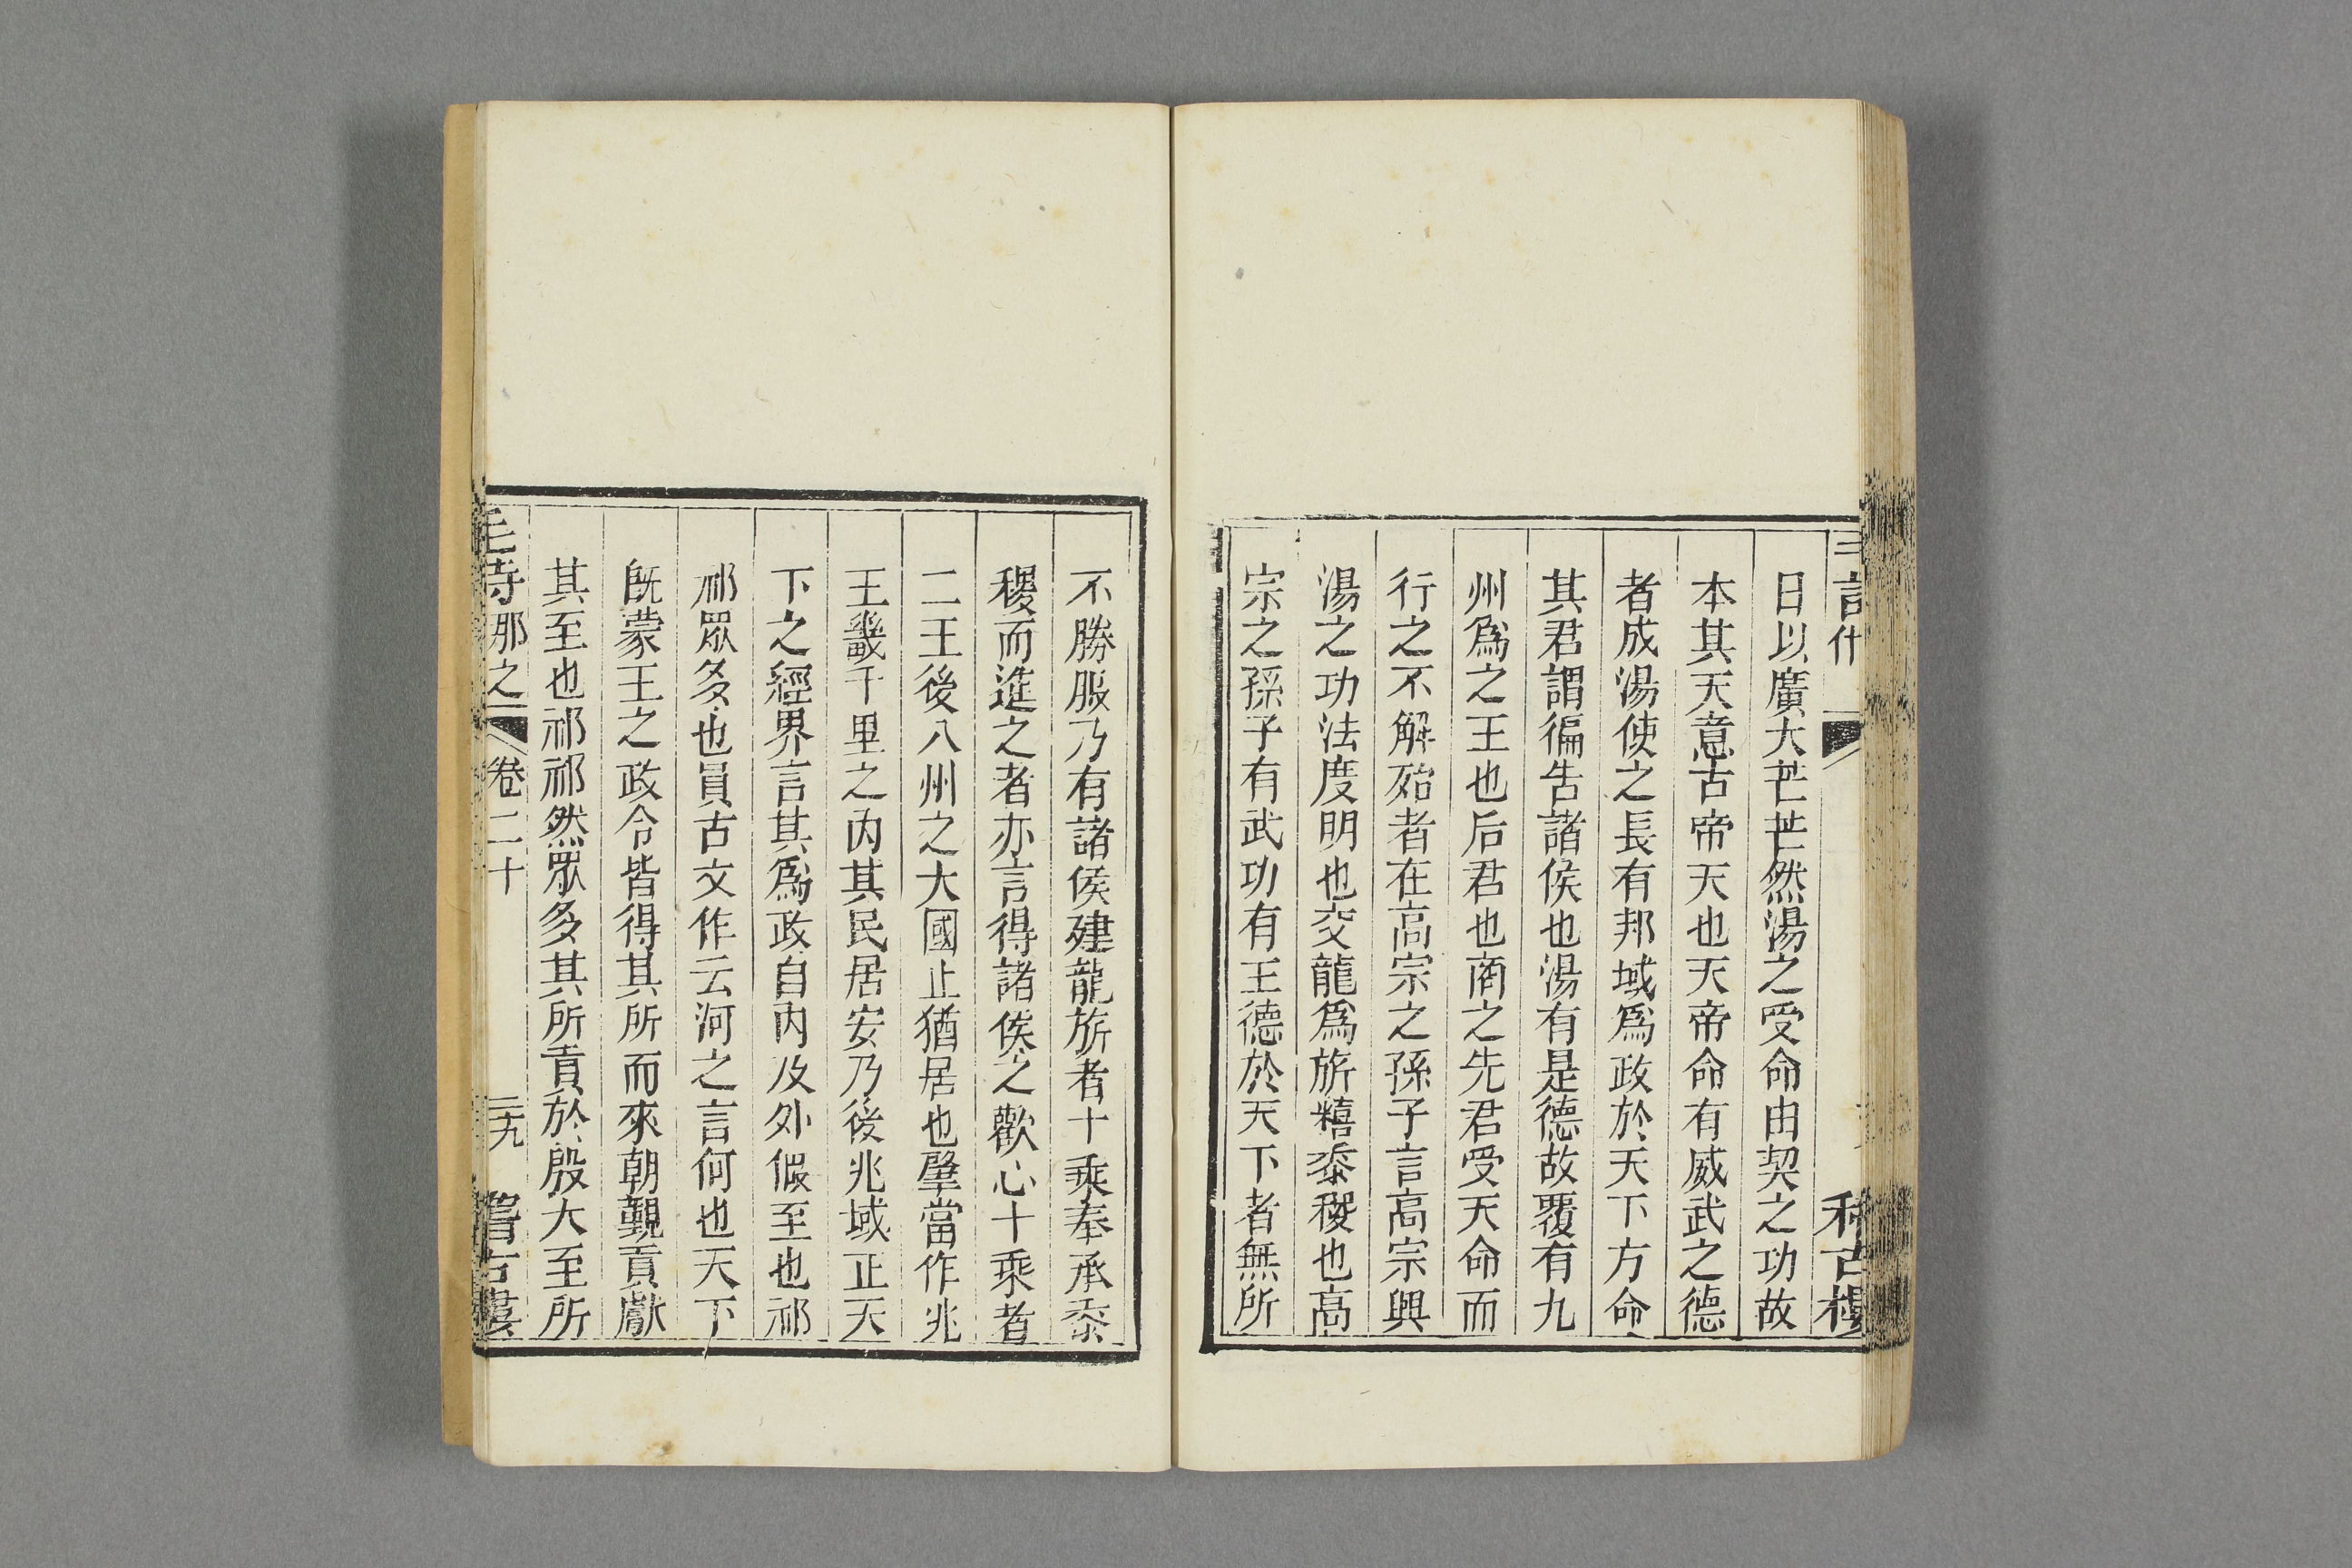 日以廣大芒芒然湯之受命由契之功故
本其天意古帝天也天帝命有威武之德
者成湯使之長有邦域爲政於天下方命
其君謂徧告諸侯也湯有是德故覆有九
州爲之王也后君也商之先君受天命而
行之不解殆者在高宗之孫子言高宗興
湯之功法度明也交龍爲旂糦黍稷也高
宗之孫子有武功有王德於天下者無所
不勝服乃有諸侯建龍旂者十乘奉承黍
稷而進之者亦言得諸侯之歡心十乘者
二王後八州之大國止猶居也肇當作兆
王畿千里之内其民居安乃後兆域正天
下之經界言其爲政自内及外假至也祁
祁眾多也員古文作云河之言何也天下
既蒙王之政令皆得其所而來朝覲貢獻
其至也祁祁然眾多其所貢於殷大至所
毛詩那之 卷二十 二九